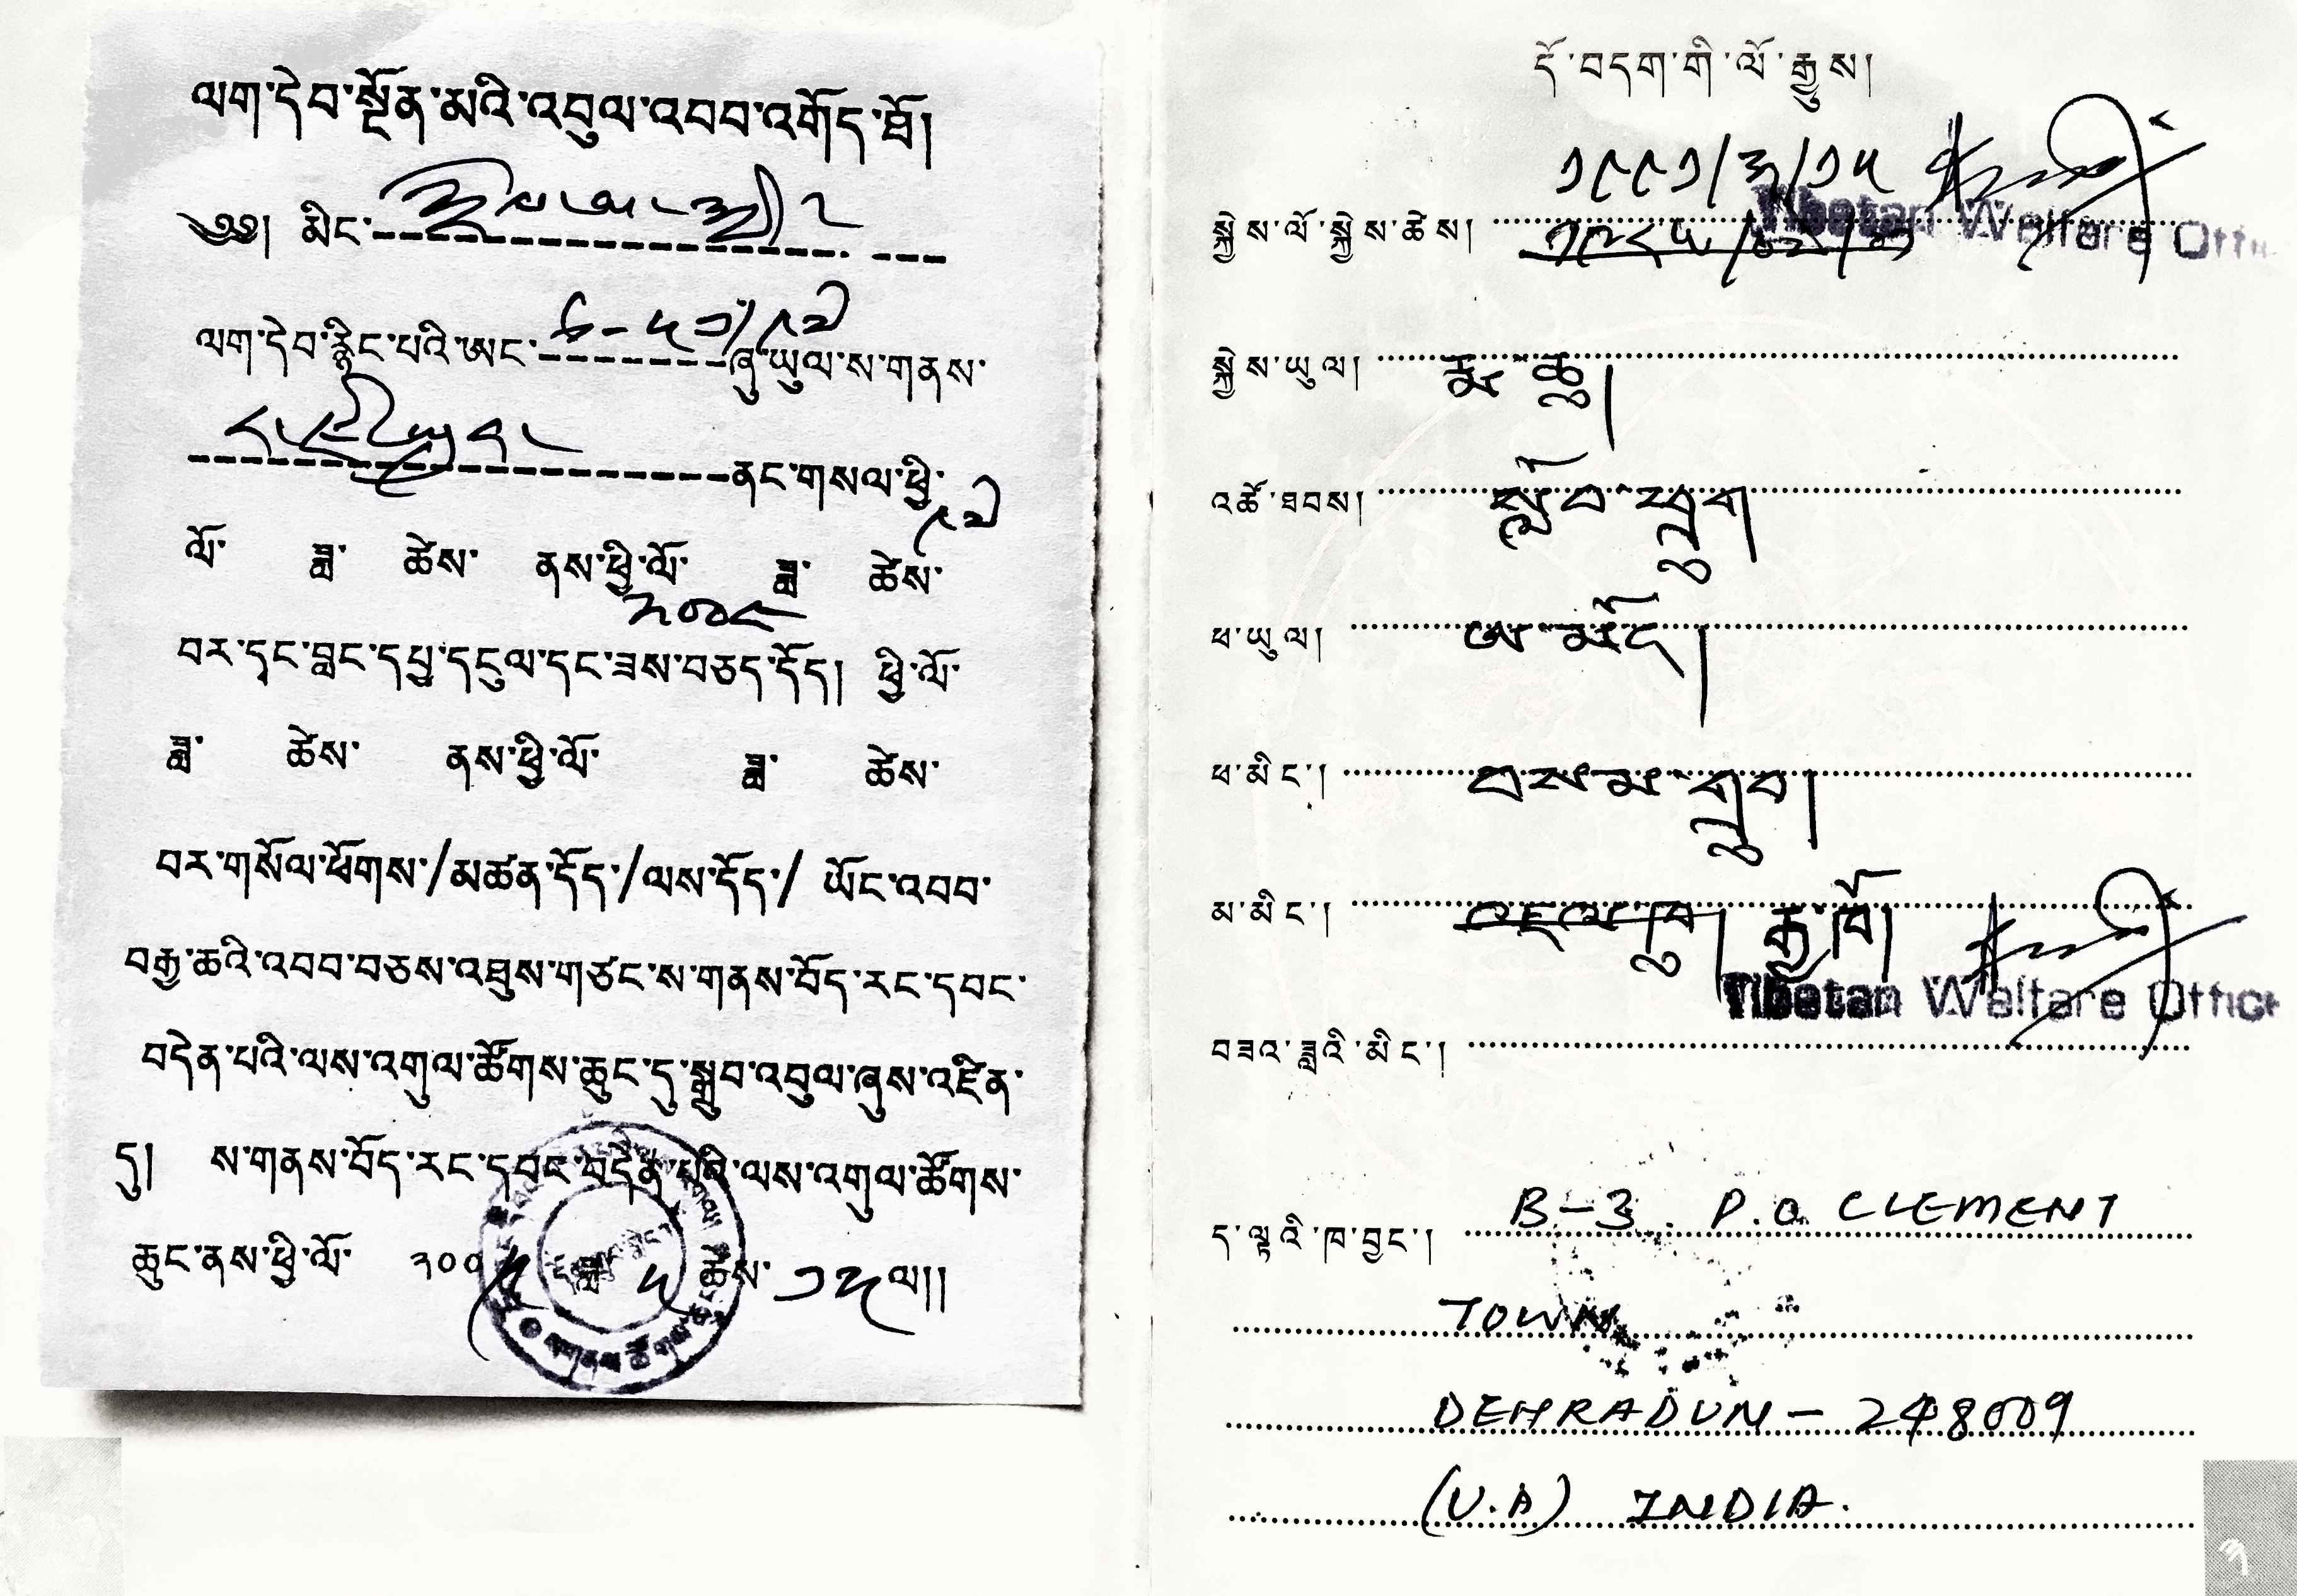 ལག་དེབ་སྔོན་མའི་འབུལ་འབབ་འགོད་ཐོ།
༄༅། མིང་
ལག་དེབ་རྙིང་པའི་ཨང་ ཞུ་ཡུལ་ས་གནས་
ནང་གསལ་ཕྱི་
ལོ་ ཟླ་ ཚེས་ ནས་ཕྱི་ལོ་ ཟླ་ ཚེས་
བར་དྭང་བླང་དཔྱ་དངུལ་དང་ཟས་བཅད་དོད། ཕྱི་ལོ་
ཟླ་ ཚེས་ ནས་ཕྱི་ལོ་ ཟླ་ ཚེས་
བར་གསོལ་ཕོགས་/མཚན་དོད་/ལས་དོད་/ ཡོང་འབབ་
བརྒྱ་ཆའི་འབབ་བཅས་འཐུས་གཙང་ས་གནས་བོད་རང་དབང་
བདེན་པའི་ལས་འགུལ་ཚོགས་ཆུང་དུ་སྒྲུབ་འབུལ་ཞུས་འཛིན་
དུ། ས་གནས་བོད་རང་དབང་བདེན་པའི་ལས་འགུལ་ཚོགས་
ཆུང་ནས་ཕྱི་ལོ་ ༢༠༠༥ ཟླ་ ༥ ཚེས་ ༡༣ ལ།།
དོ་བདག་གི་ལོ་རྒྱུས།
༡༩༩༡/༣/༡༥
སྐྱེས་ལོ་སྐྱེས་ཚེས། Tibetan Welfare Offi
སྐྱེས་ཡུལ། རྨ་ཆུ།
འཚོ་ཐབས། སློབ་ཕྲུག
ཕ་ཡུལ། ཨ་མདོ།
ཕ་མིང་། བསམ་གྲུབ།
མ་མིང་། རྒྱ་ཁོ།
Tibetan Welfare Office
བཟའ་ཟླའི་མིང་།
ད་ལྟའི་ཁ་བྱང་། B-3. P.O CLEMENT
TOWN
DEHRADUN - 248009
(U.A) INDIA.
༣